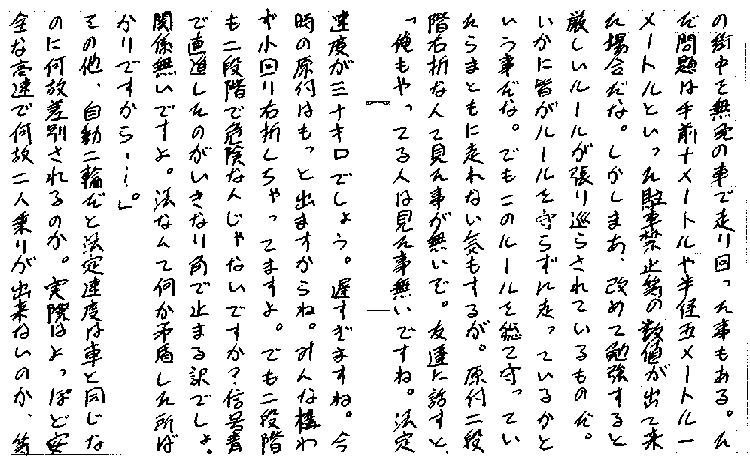 の街中を無免の車で走り回った事もある。た
だ問題は手前十メートルや半径五メートル一
メートルといった駐車禁止等の数値が出て来
た場合だな。しかしまあ、改めて勉強すると
厳しいルールが張り巡らされているものだ。
いかに皆がルールを守らずに走っているかと
いう事だな。でもこのルールを総て守ってい
たらまともに走れない気もするが。原付二段
階右折なんて見た事が無いで。友達に話すと、
「俺もやってる人は見た事無いですね。法定
速度が三十キロでしょう。遅すぎますね。今
時の原付はもっと出ますからね。みんな構わ
ず小回り右折しちゃってますよ。でも二段階
も二段階で危険なんじゃないですか？信号青
で直進したのがいきなり角で止まる訳でしょ。
関係無いですよ。法なんて何か矛盾した所ば
かりですから…。」
その他、自動二輪だと法定速度は車と同じな
のに何故差別されるのか。実際はよっぽど安
全な高速で何故二人乗りが出来ないのか、等